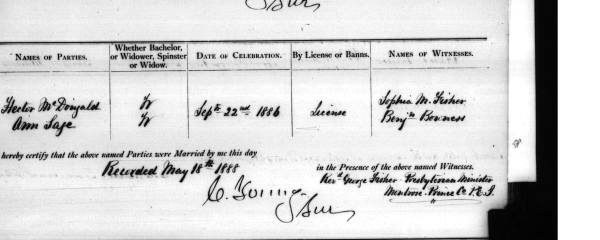 Surr
NAMES OF PARTIES.
Whether Bachelor, or Widower, Spinster or Widow.
DATE OF CELEBRATION.
By License or Banns.
NAMES OF WITNESSES.
Hector McDougald
Ann Sage
W
W
Sept 22nd 1886
License
Sophia M. Fisher
Benjn Bowness
hereby certify that the above named Parties were Married by me this day
in the Presence of the above named Witnesses.
Recorded May 18th 1888
Revd George Fisher Presbyterian Minister
Montrose Prince Co P.E.I.
C. Young
Surr